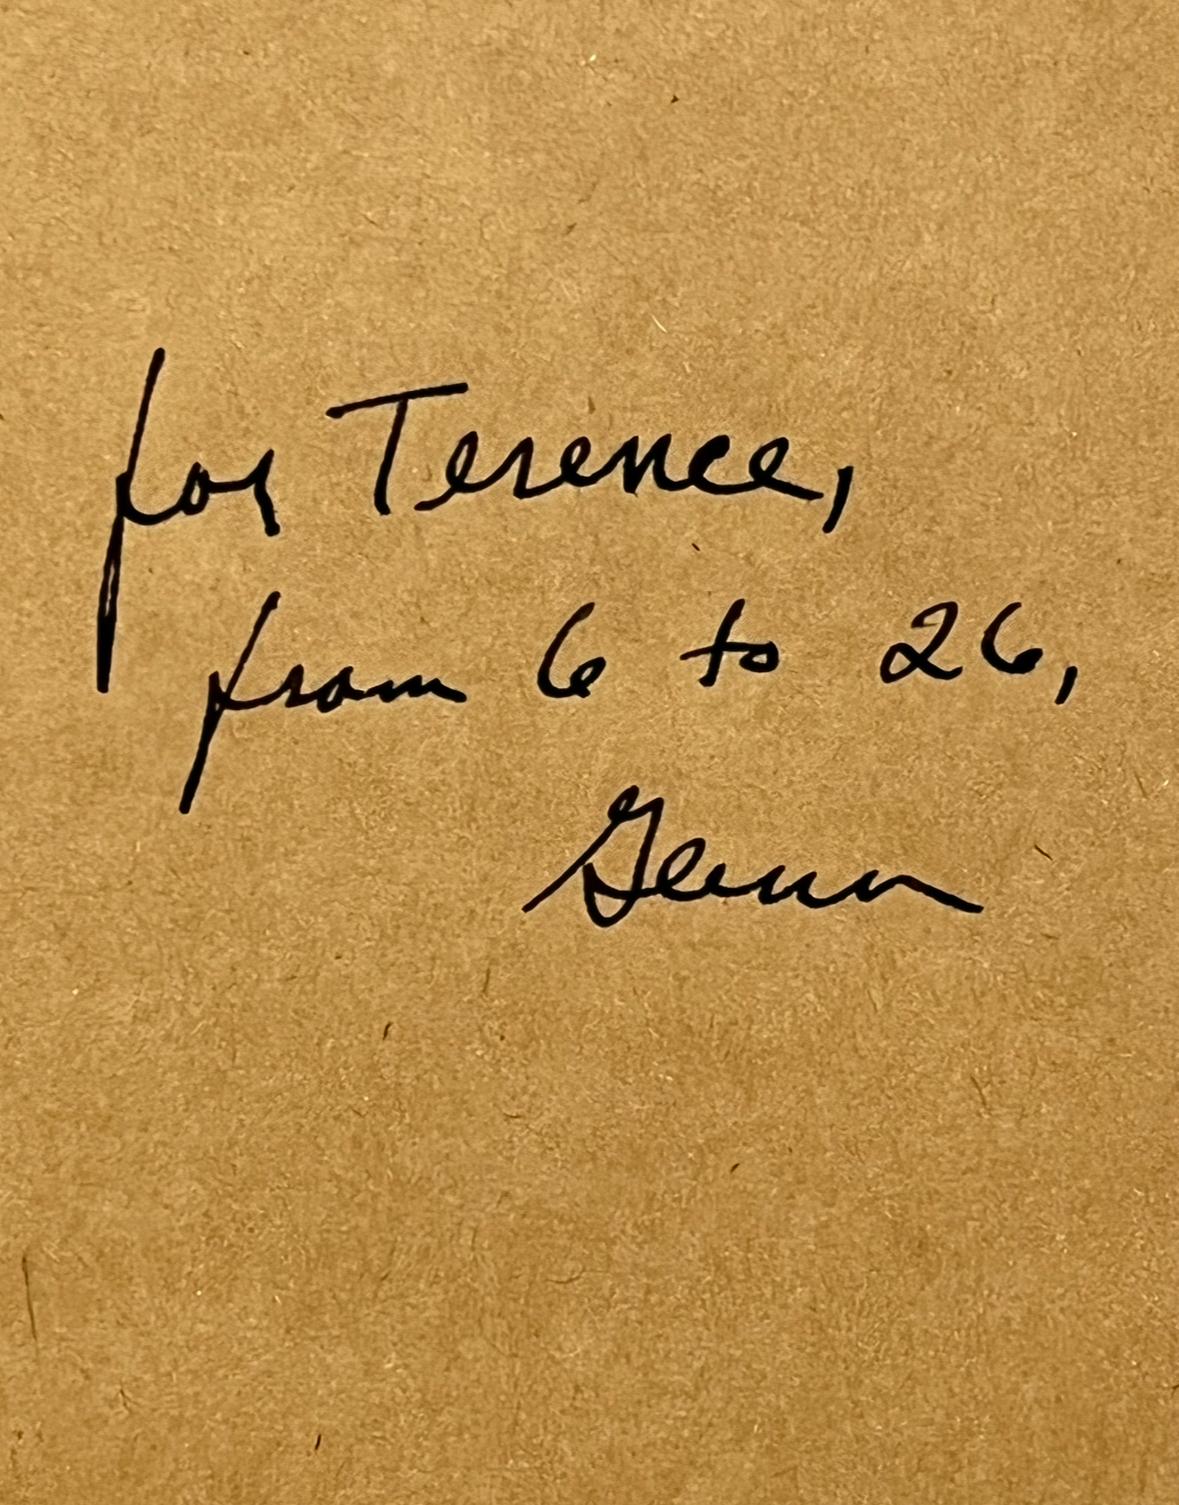 for Terence,
from 6 to 26,
Glenn